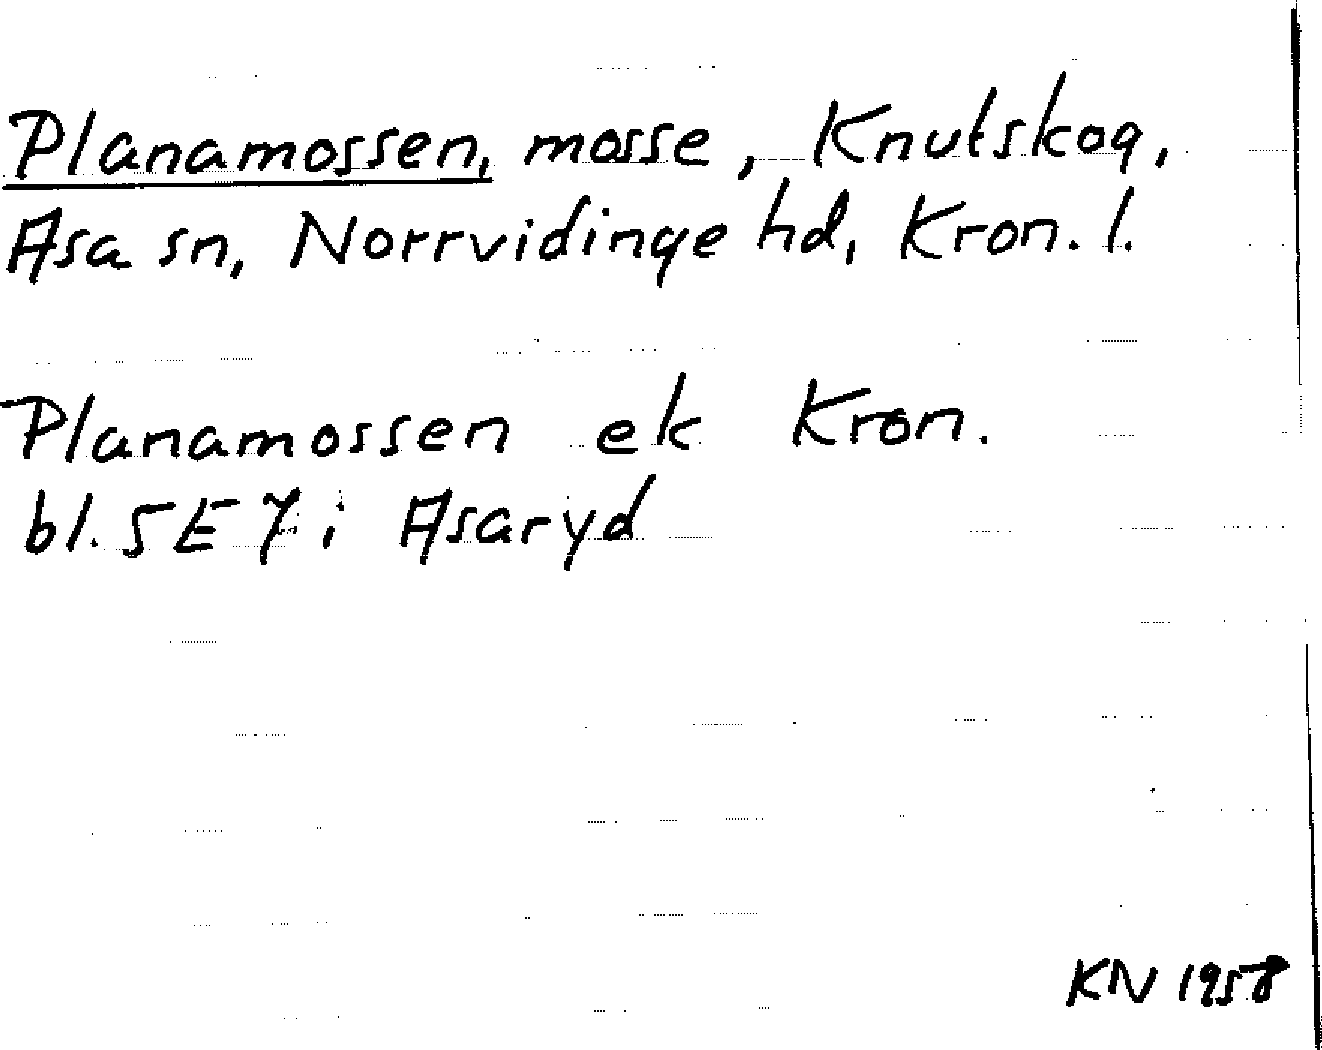 Planamossen, mosse, Knutskog,
Asa sn, Norrvidinge hd, Kron. l.
Planamossen ek Kron.
bl. 5E 7i Asaryd
KN 1958